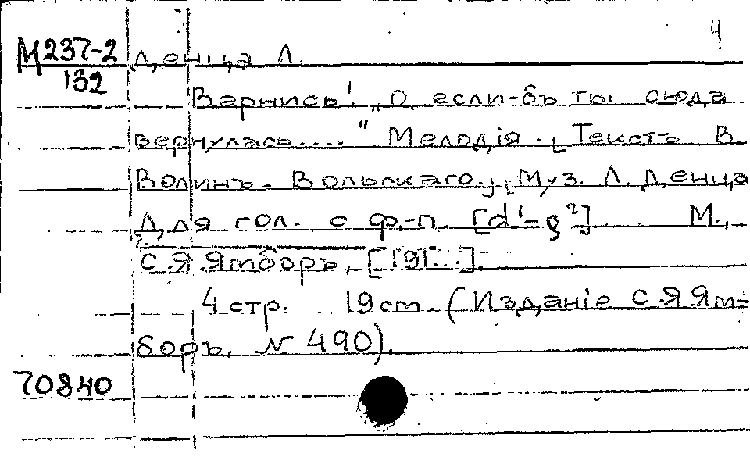 4
М237-2
132
Денца Л.
Вернись! „О если-бъ ты сюда
вернулась...." Мелодія. [Текстъ В.
Волинъ-Вольскаго], [Муз. Л. Денца
Для гол. с ф-п. [d¹-g²] М.,
С.Я Ямборъ, [191...].
4 стр. 19 cm. (Изданіе С.Я Ям=
боръ. N 490).
70840